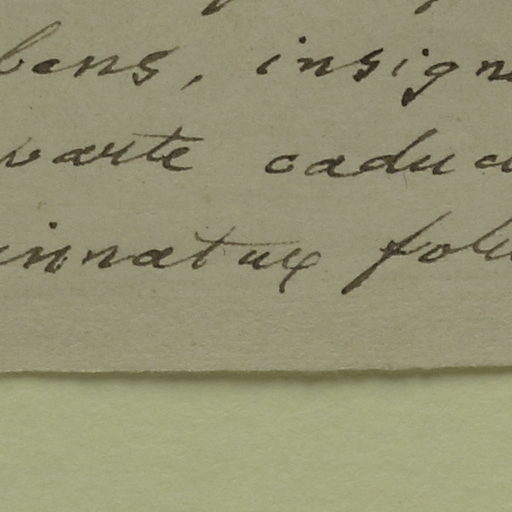 bens, insign
varte caduc
innatuq folu